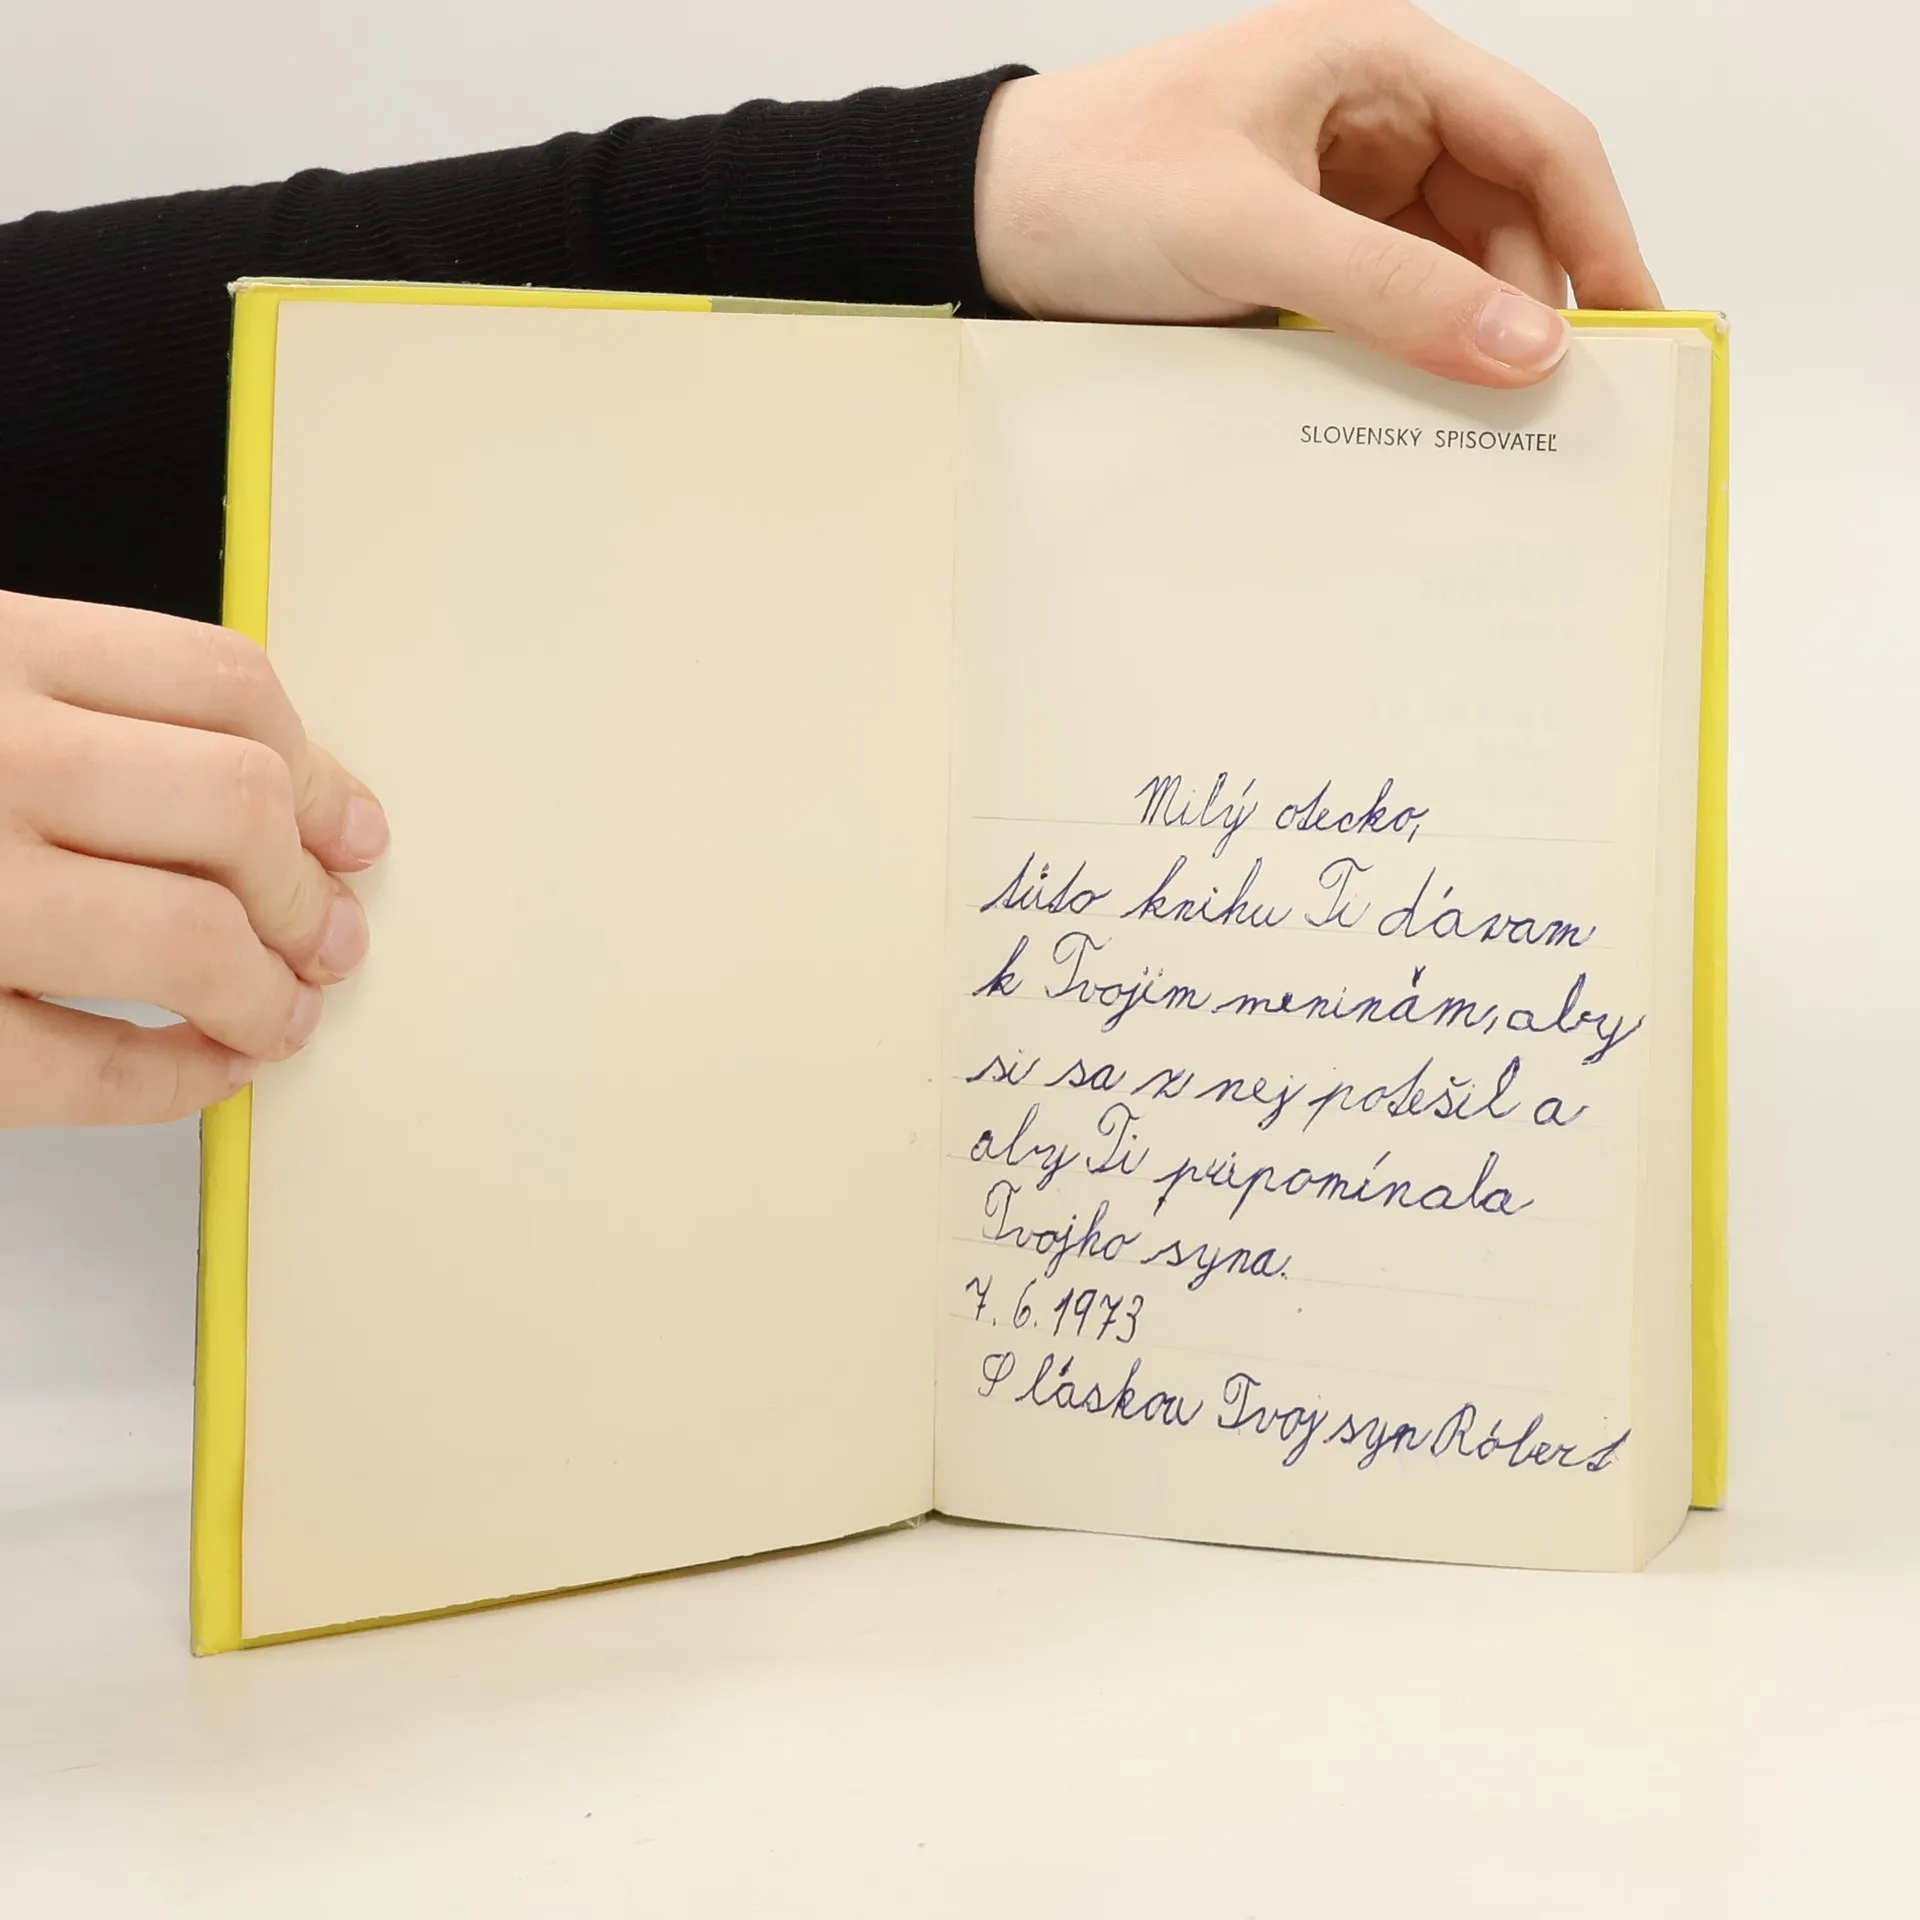 SLOVENSKÝ SPISOVATEĽ
Milý otecko,
túto knihu Ti dávam
k Tvojim meninám, aby
si sa z nej potešil a
aby Ti pripomínala
Tvojho syna.
7. 6. 1973
S láskou Tvoj syn Róbert